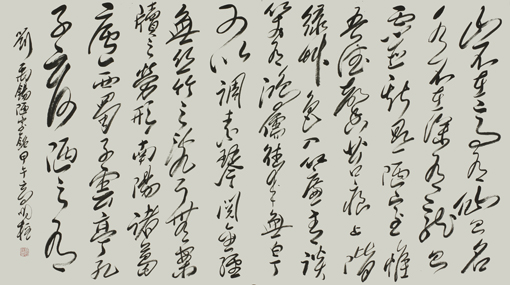 山不在高有仙则名
水不在深有龙则
灵斯是陋室惟
吾德馨苔痕上階
緑草色入簾青談
笑有鸿儒往来無白丁
可以調素琴阅金经
無丝竹之乱耳無案
牍之劳形南陽諸葛
庐西蜀子雲亭孔
子云何陋之有
劉禹錫陋室銘甲午